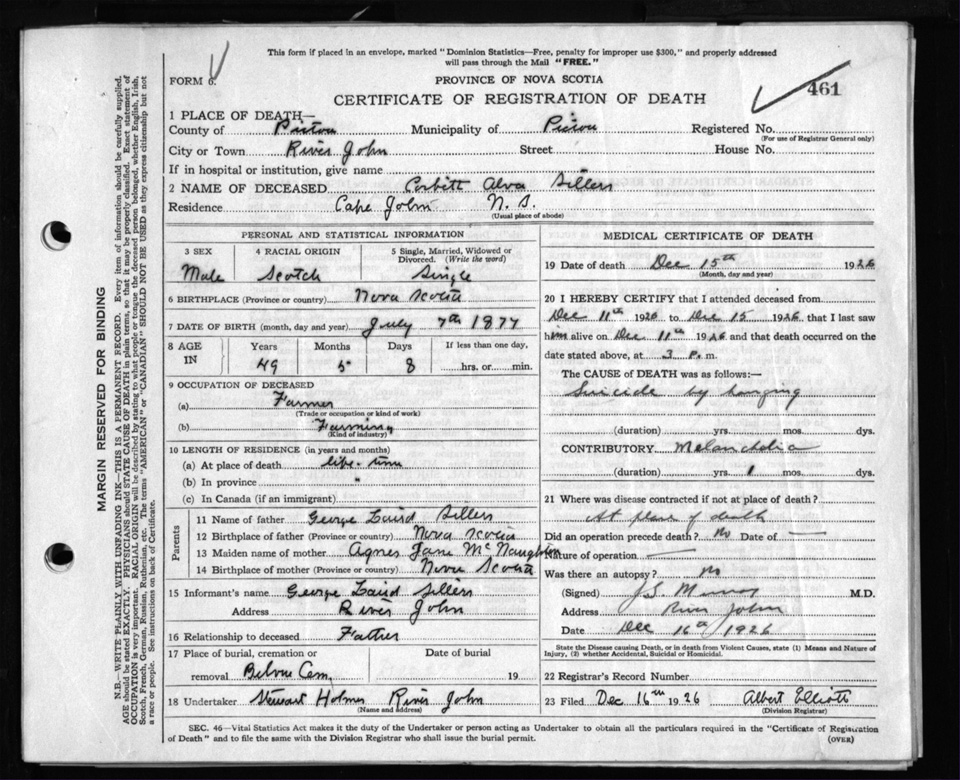 This form if placed in an envelope, marked "Dominion Statistics—Free, penalty for improper use $300," and properly addressed
will pass through the Mail "FREE."
FORM 6.
PROVINCE OF NOVA SCOTIA
461
CERTIFICATE OF REGISTRATION OF DEATH
1 PLACE OF DEATH—
County of Pictou Municipality of Pictou Registered No.
(For use of Registrar General only)
City or Town River John Street House No.
If in hospital or institution, give name
2 NAME OF DECEASED Corbitt Alva Sillers
Residence Cape John N. S.
(Usual place of abode)
PERSONAL AND STATISTICAL INFORMATION
3 SEX 4 RACIAL ORIGIN 5 Single, Married, Widowed or
Divorced. (Write the word)
Male Scotch Single
6 BIRTHPLACE (Province or country) Nova Scotia
7 DATE OF BIRTH (month, day and year) July 7th 1877
8 AGE IN Years Months Days If less than one day,
49 5 8 hrs. or min.
9 OCCUPATION OF DECEASED
(a) Farmer
(Trade or occupation or kind of work)
(b) Farming
(Kind of industry)
10 LENGTH OF RESIDENCE (in years and months)
(a) At place of death life-time
(b) In province "
(c) In Canada (if an immigrant)
Parents
11 Name of father George Laird Sillers
12 Birthplace of father (Province or country) Nova Scotia
13 Maiden name of mother Agnes Jane McNaughton
14 Birthplace of mother (Province or country) Nova Scotia
15 Informant's name George Laird Sillers
Address River John
16 Relationship to deceased Father
17 Place of burial, cremation or Date of burial
removal Cem. 19
18 Undertaker Stewart Holmes River John
(Name and address)
MEDICAL CERTIFICATE OF DEATH
19 Date of death Dec 15th 1926
(Month, day and year)
20 I HEREBY CERTIFY that I attended deceased from
Dec 11th 1926 to Dec 15 1926 that I last saw
him alive on Dec 11th 1926 and that death occurred on the
date stated above, at 3 P. m.
The CAUSE of DEATH was as follows:—
Suicide by hanging
(duration) yrs. mos. dys.
CONTRIBUTORY Melancholia
(duration) yrs. 1 mos. dys.
21 Where was disease contracted if not at place of death?
At place of death
Did an operation precede death? No Date of —
Nature of operation —
Was there an autopsy? no
(Signed) J.S. Murray M.D.
Address River John
Date Dec 16th 1926
State the Disease causing Death, or in death from Violent Causes, state (1) Means and Nature of
Injury, (2) whether Accidental, Suicidal or Homicidal.
22 Registrar's Record Number
23 Filed Dec 16th 1926 Albert Elliott
(Division Registrar)
SEC. 46—Vital Statistics Act makes it the duty of the Undertaker or person acting as Undertaker to obtain all the particulars required in the "Certificate of Registration
of Death" and to file the same with the Division Registrar who shall issue the burial permit.
(OVER)
MARGIN RESERVED FOR BINDING
N.B.—WRITE PLAINLY WITH UNFADING INK—THIS IS A PERMANENT RECORD. Every item of information should be carefully supplied.
AGE should be stated EXACTLY. PHYSICIANS should STATE CAUSE OF DEATH in plain terms, so that it may be properly classified. Exact statement of
OCCUPATION is very important. RACIAL ORIGIN will be described by stating to what people or tongue the deceased person belonged, whether English, Irish,
Scotch, French, German, Russian, Ruthenian, etc. The terms "AMERICAN" or "CANADIAN" SHOULD NOT BE USED as they express citizenship but not
a race or people. See instructions on back of Certificate.